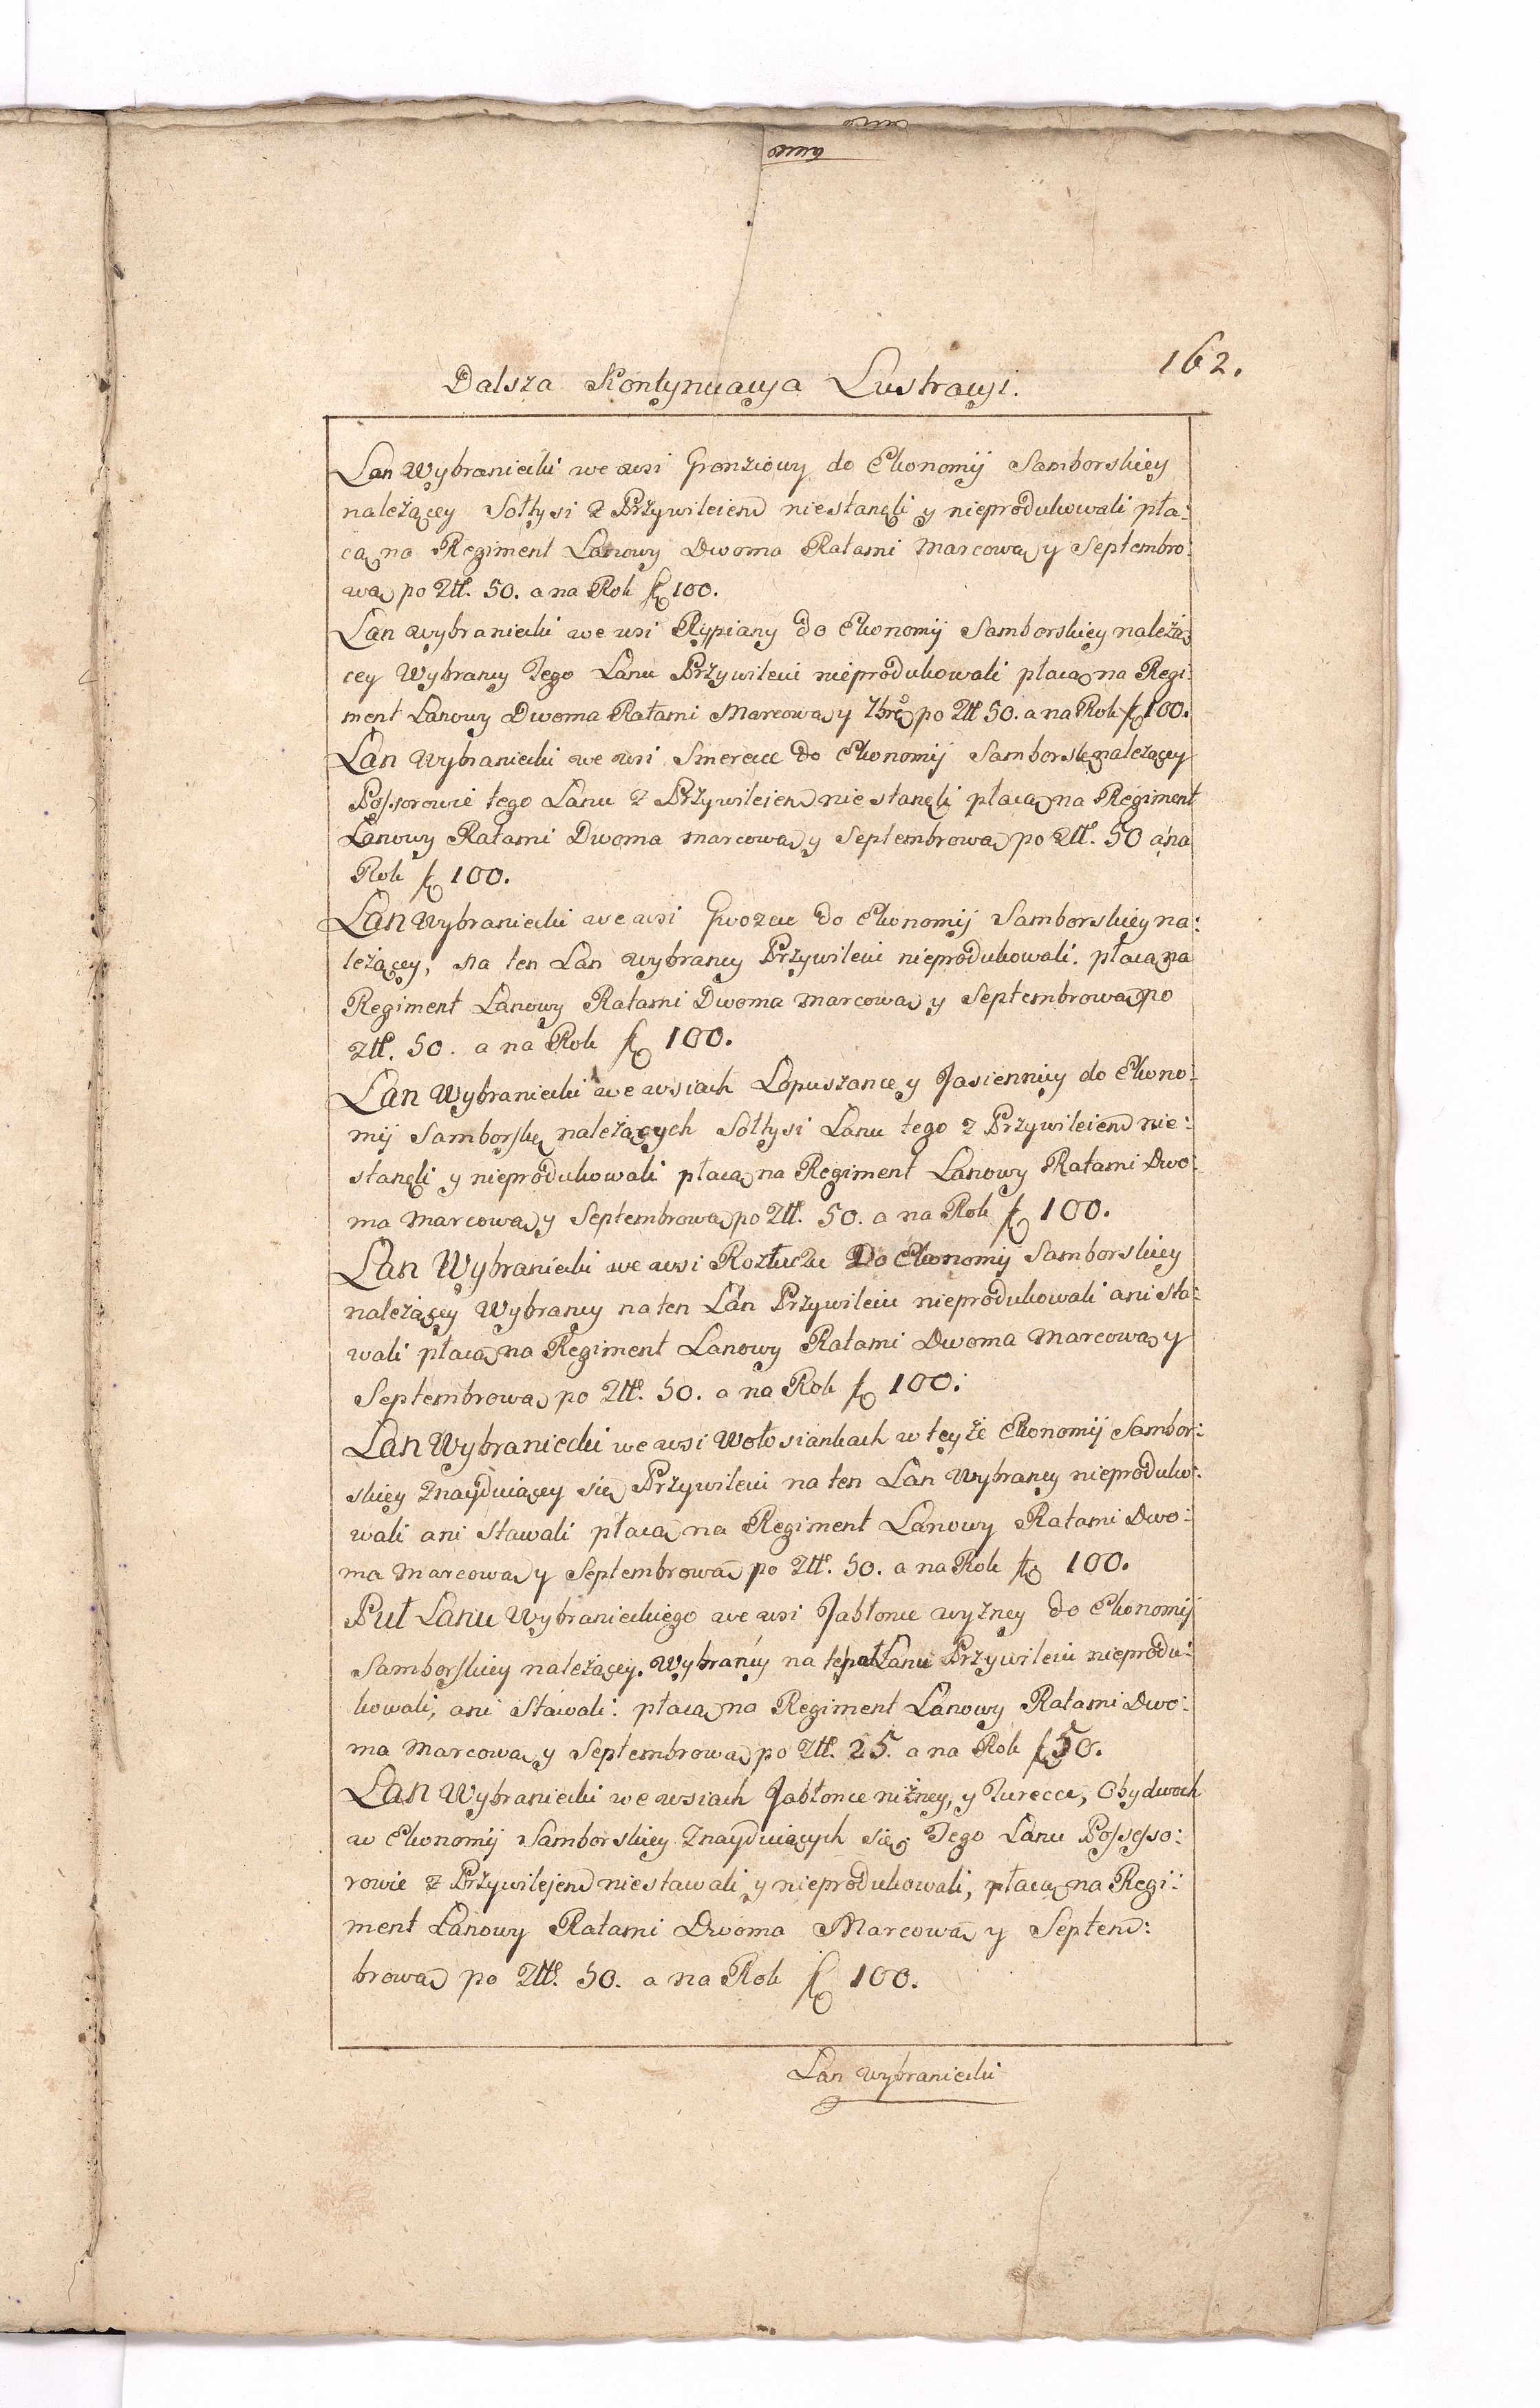 162.
Dalsza Kontynuacya Lustracyi.
Łan Wybraniecki we wsi Gronziowy do Ekonomij Samborskiey
należącey Sołtysi z Przywileiem niestanęli y nieprodukowali pła:
cą na Regiment Łanowy Dwoma Ratami Marcową y Septembro:
wą po Złł. 50. a na Rok fl 100.
Łan wybraniecki we wsi Rypiany do Ekonomij Samborskiey należą
cey Wybrancy Tego Łanu Przywileiu nieprodukowali płacą na Regi:
ment Łanowy Dwoma Ratami Marcową y 7brą po Złł 50. a na Rok fl 100.
Łan Wybraniecki we wsi Smerecce do Ekonomij Samborsk należącey
Possorowie tego Łanu z Przywileiem nie stanęli płacą na Regiment
Łanowy Ratami Dwoma marcową y Septembrową po Złł. 50 a na
Rok fl 100.
Łan Wybraniecki we wsi Gwozcu do Ekonomij Samborskiey na:
leżącey, na ten Łan wybrancy Przywileiu nieprodukowali. płacą na
Regiment Łanowy Ratami Dwoma marcową y Septembrową po
Złł. 50. a na Rok fl 100.
Łan Wybraniecki we wsiach Łopuszance y Jasiennicy do Ekono:
mij Samborsk należących Sołtysi Łanu tego z Przywileiem nie:
stanęli y nieprodukowali płacą na Regiment Łanowy Ratami Dwo:
ma Marcową y Septembrową po Złł. 50. a na Rok fl 100.
Łan Wybraniecki we wsi Rozłuczu Do Ekonomij Samborskiey
należącey Wybrancy na ten Łan Przywileiu nieprodukowali ani sta:
wali płacą na Regiment Łanowy Ratami Dwoma Marcową y
Septembrową po Złł. 50. a na Rok fl 100.
Łan Wybraniecki we wsi Wołosiankach w teyże Ekonomij Sambor:
skiey Znayduiącey się Przywileiu na ten Łan Wybrancy nieproduko:
wali ani Stawali płacą na Regiment Łanowy Ratami Dwo:
ma Marcową y Septembrową po Złł. 50. a na Rok fl 100.
Puł Łanu Wybranieckiego we wsi Jabłonce wyżney do Ekonomij
Samborskiey należącey. Wybrancy na te puł Łanu Przywileiu nieprodu:
kowali, ani Stawali: płacą na Regiment Łanowy Ratami Dwo:
ma Marcową y Septembrową po Złł. 25. a na Rok fl 50.
Łan Wybraniecki we wsiach Jabłonce niżney, y Turecce, Obydwoch
w Ekonomij Samborskiey Znayduiących się. Tego Łanu Possesso:
rowie z Przywilejem niestawali y nieprodukowali, płacą na Regi:
ment Łanowy Ratami Dwoma Marcową y Septem:
brową po Złł. 50. a na Rok fl 100.
Łan wybraniecki